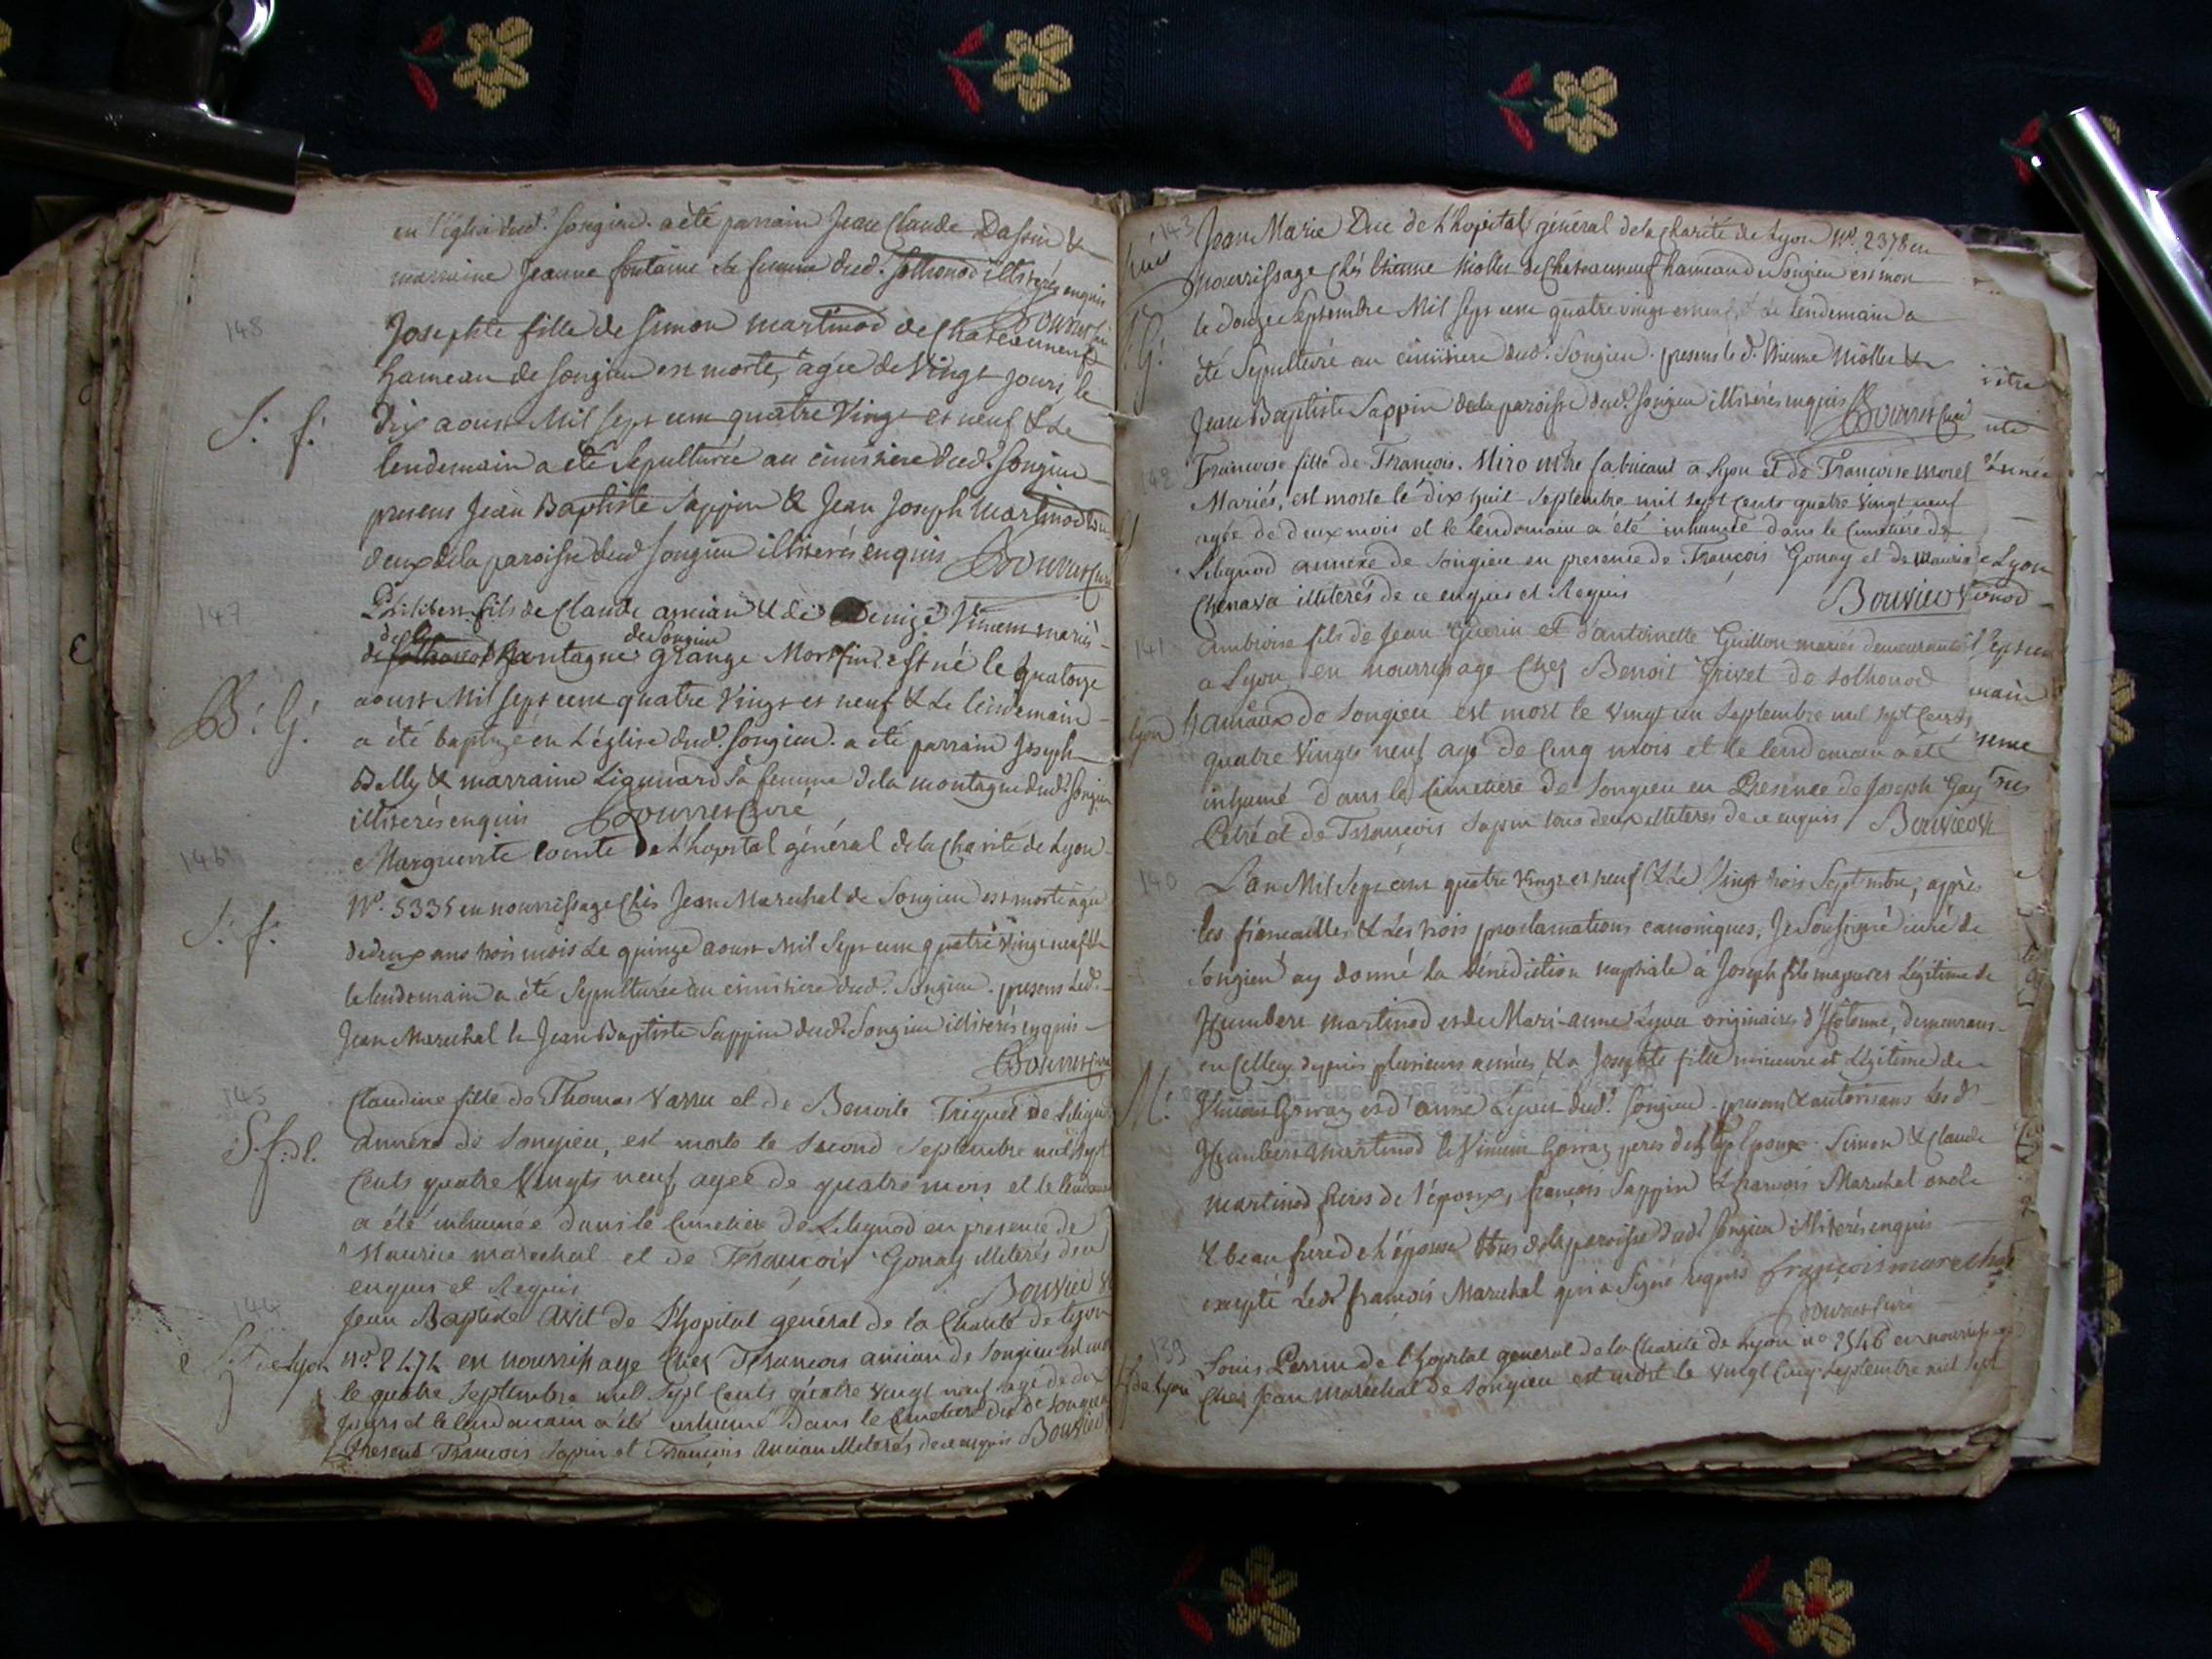 en l'église dud. songieu. a été parrain Jean Claude Dassin &
marraine Jeanne fontaine sa femme dud. sothonod illiterés enquis
Bourret Curé
148
Josephte fille de Simon martinod de Chateauneuf
hameau de songieu est morte, agée de Vingt jours, le
S: f:
dix aoust Mil sept cent quatre Vingt et neuf & le
lendemain a été sepulturée au cimitiere dud. songieu
presens Jean Baptiste Sappin & Jean Joseph Martinod tous
deux de la paroisse dud. songieu illiterés enquis Bourret Curé
147
Philibert fils de Claude ancian & de Denize Vincent mariés
de songieu
montagne grange Morfin est né le quatorze
aoust Mil sept cent quatre Vingt et neuf & le lendemain
B: G:
a été baptizé en L'église dud. songieu. a été parrain Joseph
Bally & marraine sa femme de la montagne dud. songieu
illiterés enquis Bourret Curé
146
Marguerite Comte de L'hopital général de la Charité de Lyon
N° 5335 en nourrissage chés Jean Marechal de Songieu est morte agée
S: f:
de deux ans trois mois Le quinze aoust Mil Sept cent quatre Vingt neuf &
le lendemain a été Sepulturée au cimitiere dud. Songieu. presens Led.
Jean Marechal & Jean Baptiste Sappin dud. Songieu illiterés enquis
Bourret Curé
145
Claudine fille de Thomas Varru et de Benoite Triquet de Lilignod
S. f: d l.
annexe de Songieu, est morte le Second Septembre mil sept
Cents quatre Vingts neuf, agée de quatre mois et le lendemain
a été inhumée dans le Cimetiere de Lilignod en presence de
Maurice marechal et de François Gonay illiterés de ce
enquis et Requis Bouvier
144
Jean Baptiste Avit de L'hopital général de la Charité de Lyon
de Lyon
n° 2474 en nourrissage chez François ancian de Songieu est mort
le quatre Septembre mil Sept Cents quatre vingt neuf agé de dix
jours et le lendemain a été inhumé dans le Cimetiere dud de Songieu
Present François Sapin et François Ancian illiterés de ce enquis Bouvier
143
Jean Marie Duc de L'hopital général de la Charité de Lyon N° 2378 en
nourrissage chés Etienne Mollet de Chateauneuf hameau de Songieu est mort
le douze Septembre Mil sept cent quatre vingt et neuf & le lendemain a
S: G:
été Sepulturé au cimitiere dud. Songieu. presens le d. Etienne Mollet &
Jean Baptiste Sappin de la paroisse dud. Songieu illiterés enquis Bourret Curé
142
Francoise fille de François Miro mtre fabricant a Lyon et de Francoise morel
Mariés, est morte le dix huit Septembre mil sept cents quatre vingt neuf
agée de deux mois et le lendemain a été inhumée dans le Cimetiere de
Lilignod annexe de Songieu en presence de François Gonay et de Maurice
Chenava illiterés de ce enquis et Requis Bouvier V
141
Ambroise fils de Jean Guerin et d'antoinette Guillon mariés demeurants
a Lyon en nourrissage Chez Benoit Grivet de Sothonod
Lyon
hamaux de Songieu est mort le vingt un Septembre mil sept Cents
quatre Vingts neuf agé de Cinq mois et le lendemain a été
inhumé dans le Cimetiere de Songieu en Presence de Joseph Gay
Petré et de François Sapin tous deux illiteres de ce enquis Bouvier V
140
L'an Mil Sept cent quatre Vingt et neuf & Le Vingt trois Septembre, après
les fiancailles & Les trois proclamations canoniques, Je Soussigné curé de
Songieu ay donné la bénédiction nuptiale à Joseph fils majeur et Légitime de
Humbert Martinod et de Marie-anne Lyvet originaires d'Hotonne, demeurans
en Cilleu depuis plusieurs années, & a Josephte fille mineure et Légitime de
M:
Vincent Gorraz et d'anne Lyvet dud. Songieu. presens & autorisans Les d.
Humbert Martinod & Vincent Gorraz peres des epoux. Simon & Claude
Martinod freres de l'époux, françois Sappin & francois Marechal oncle
& beau frere de L'épouse tous de la paroisse dud. Songieu illiterés enquis
excepté Led. françois Marechal qui a Signé requis françois marechal
Bourret Curé
139
Louis Perrin de L'hopital general de la Charité de Lyon n° 2546 en nourrissage
de Lyon
Chez Jean marechal de Songieu est mort le vingt Cinq Septembre mil sept